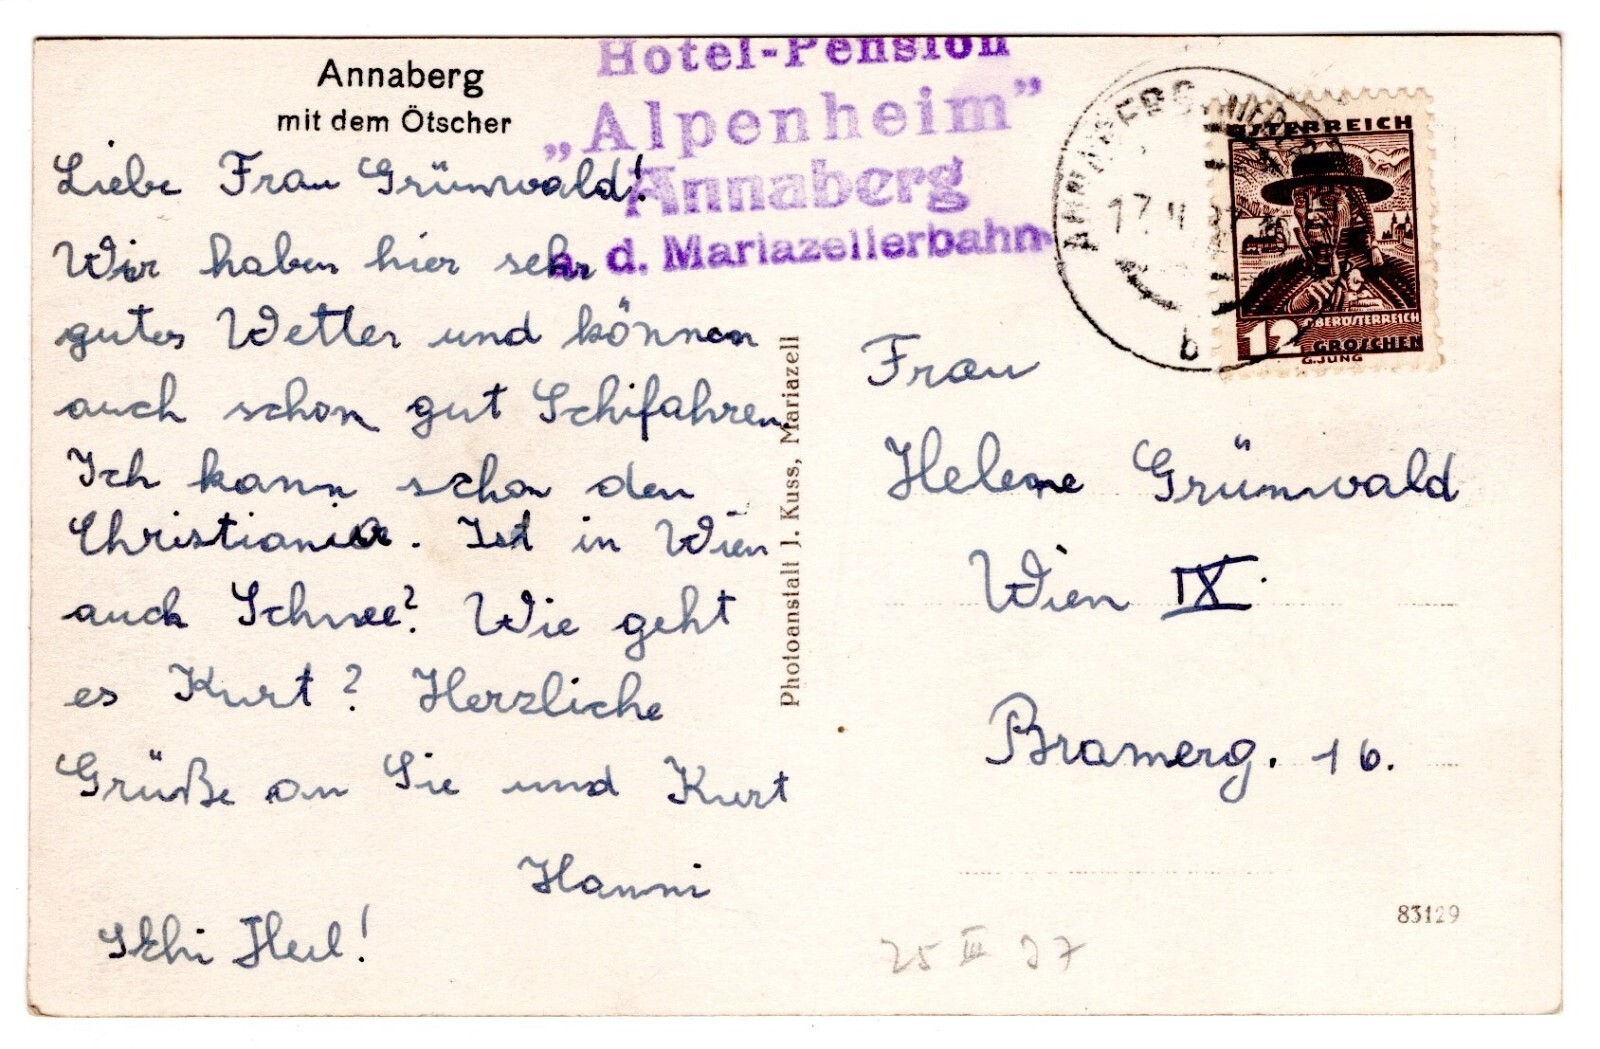 Annaberg
mit dem Ötscher
Hotel-Pension
„Alpenheim”
Annaberg
a. d. Mariazellerbahn
Liebe Frau Grünwald!
Wir haben hier sehr
gutes Wetter und können
auch schon gut Schifahren.
Ich kann schon den
Christiania. Ist in Wien
auch Schnee? Wie geht
es Kurt? Herzliche
Grüße an Sie und Kurt
Hanni
Schi Heil!
Photoanstalt J. Kuss, Mariazell
ÖSTERREICH
OBERÖSTERREICH
12 GROSCHEN
G. JUNG
ANNABERG
b
Frau
Helene Grünwald
Wien IX.
Bramerg. 16.
83129
25 III 37